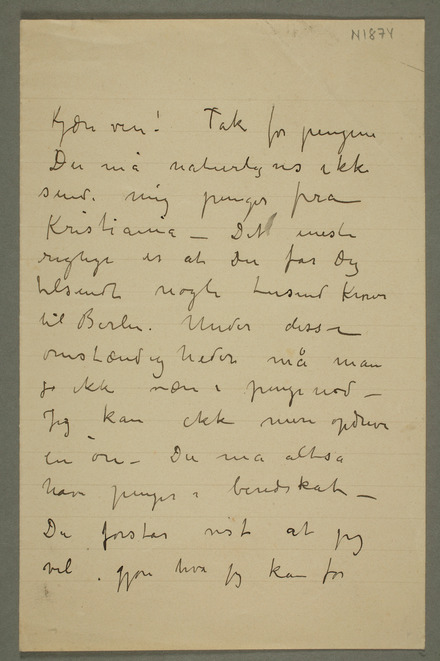 N1874
Kjære ven! Tak for pengene
Du må naturligvis ikke
sende mig penger fra
Kristiania – Det eneste
rigtige er at Du får Dig
tilsendt nogle tusend Kroner
til Berlin. Under disse
omstændigheder må man
jo ikke være i pengenød –
Jeg kan ikke mere opdrive
en øre – Du må altså
have penger i beredskab –
Du forstår vist at jeg
vil gjøre hva jeg kan for